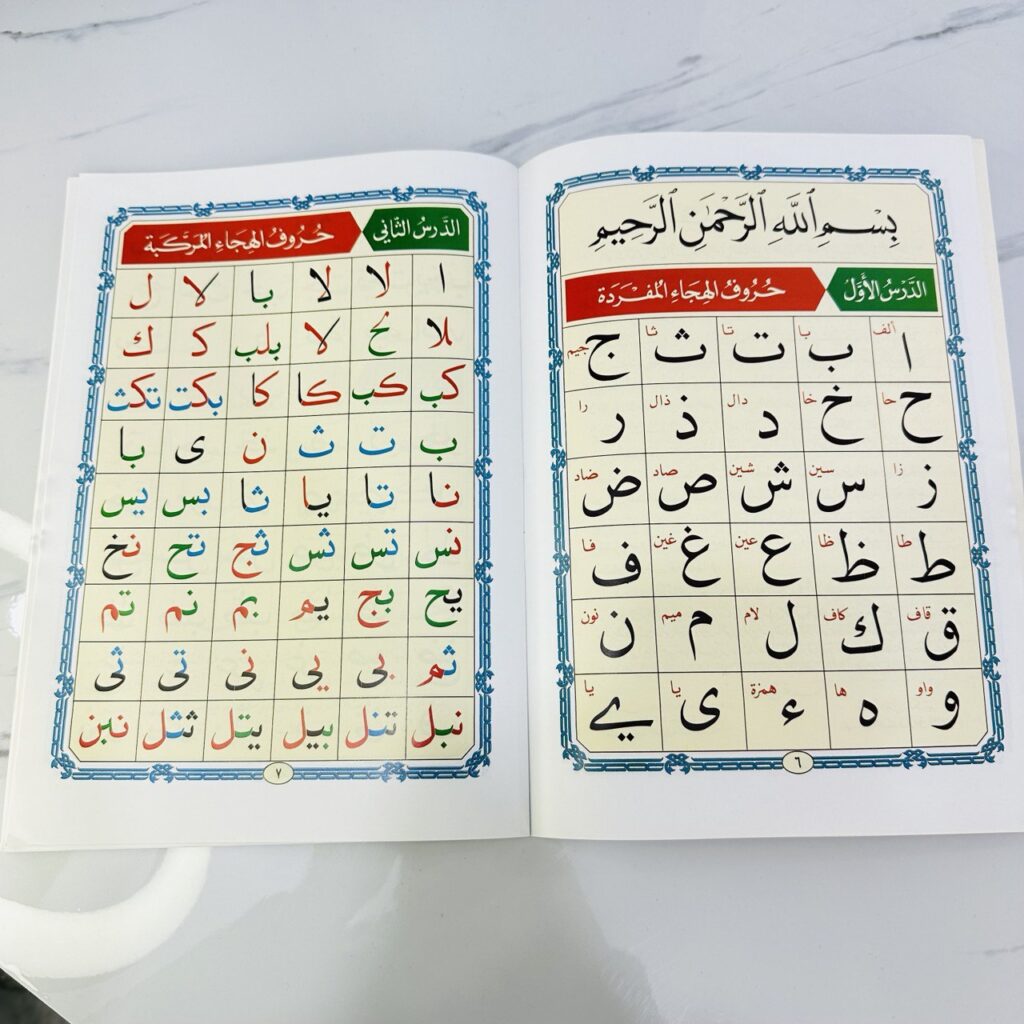 بِسْمِ ٱللَّهِ ٱلرَّحْمَٰنِ ٱلرَّحِيمِ
الدَّرْسُ الأَوَّلُ حُرُوفُ الهِجَاءِ المُفْرَدَة
ا ألف ب با ت تا ث ثا ج جيم
ح حا خ خا د دال ذ ذال ر را
ز زا س سين ش شين ص صاد ض ضاد
ط طا ظ ظا ع عين غ غين ف فا
ق قاف ك كاف ل لام م ميم ن نون
و واو ه ها ء همزة ى يا ے يا
٦
الدَّرْسُ الثَّانِي حُرُوفُ الهِجَاءِ المُرَكَّبَة
ا لا لا با لا ل
بلا لح لا بلب ك ك
كب كب كا كا بكت تكث
ب ت ث ن ى با
نا تا يا ثا بس يس
نس تس ثس ثج تح نخ
يح بج يم بم نم تم
ثم بى يى نى تى ثى
نبل تنل بيل يتل ثثل نبن
٧